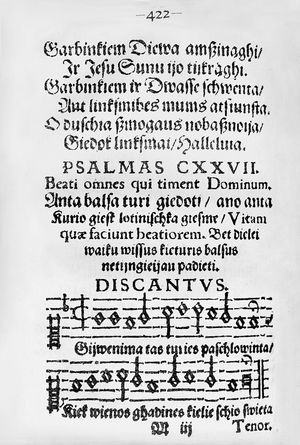 —422—
Garbinkiem Diewa amßinaghi/
Ir Jesu Sunu ijo tikraghi.
Garbinkiem ir Dwasse schwenta/
Ant linksmibes mums atsiunsta.
O duschia ßmogaus nobaßnoija/
Giedok linksmai/Halleluia.
PSALMAS CXXVII.
Beati omnes qui timent Dominum.
Anta balsa turi giedoti/ ano anta
Kurio giest lotinischka giesme/ Vitam
quæ faciunt beatiorem. Bet dielei
waiku wissus kicturis balsus
netijngieijau padieti.
DISCANTVS.
Gijwenima tas turies paschlowinta/
Kiek wienos ghadines kielie schio swieta
M iij
Tenor.